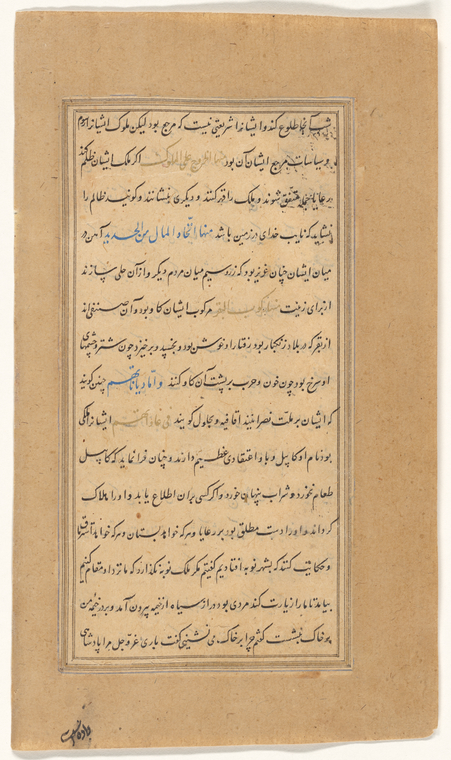 شب آنجا طلوع کند و ایشانرا شریعتی نیست که مرجع بود لیکن ملوک ایشانرا
و سیاسات مرجع ایشان آن بود منها الخروج علی الملوک اگر ملک ایشان ظلم کند
بر رعایا متفق شوند و ملک را قهر کنند و دیگری بنشانند و گویند ظالم را
نشاید که نایب خدای در زمین باشد منها اتخاذ المال من الحدید آهن در
میان ایشان چنان عزیز بود که زر و سیم میان مردم دیگر و از آن حلی سازند
از برای زینت منها رکوب البقر مرکوب ایشان گاو بود و آن صنفی اند
از بقر که در بلاد زنگبار بود رفتار او خوش بود و بخسپد و برخیزد چون شتر و چشمهای
او سرخ بود چون خون و حرب بر پشت آن گاو کنند و اما دیاناتهم چنین گویند
که ایشان بر ملت نصرانیند آفاقیه و بجاول گویند فی عاداتهم ایشانرا ملکی
بود نام او کابیل و باو اعتقادی عظیم دارند و چنان فرا نماید که کابیل
طعام نخورد و شراب پنهان خورد و اگر کسی بران اطلاع یابد او را هلاک
گرداند و او را دست مطلق بود بر رعایا و هر که خواهد بستان و هر که خواهد
و حکایت کنند که بشهر نوبه افتادیم گفتیم مگر ملک نوبه نگذارد که ما نزد او مقام کنیم
بیامد تا ما را زیارت کند مردی بود دراز سیاه از خیمه بیرون آمد و بر در خیمهٔ من
بر خاک بنشست گفتم چرا بر خاک می نشینی گفت باری عز و جل مرا پادشاهی